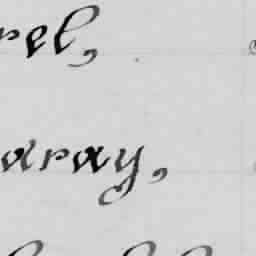 rel,
aray,